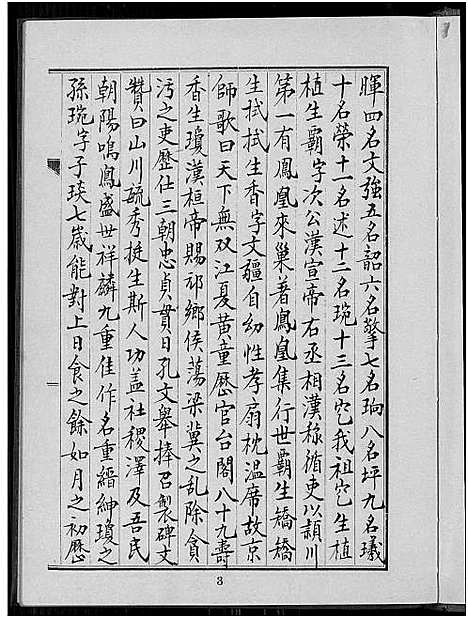 暉四名文強五名韶六名擎七名珦八名坪九名㬢
十名榮十一名述十二名琬十三名宅我祖宅生植
植生霸字次公漢宣帝右丞相漢称循吏以頴川
第一有鳳凰來巢著鳳凰集行世霸生矯矯
生拭拭生香字文疆自幼性孝扇枕温席故京
師歌曰天下無双江夏黄童歷官台閣八十九壽
香生瓊漢桓帝賜祁鄉侯蕩梁冀之乱除貪
污之吏歷仕三朝忠貞貫日孔文舉捧召製碑文
贊曰山川毓秀挺生斯人功盖社稷澤及吾民
朝陽鳴鳳盛世祥麟九重佳作名重縉紳瓊之
孫琬字子琰七歲能對上日食之餘如月之初歷
3